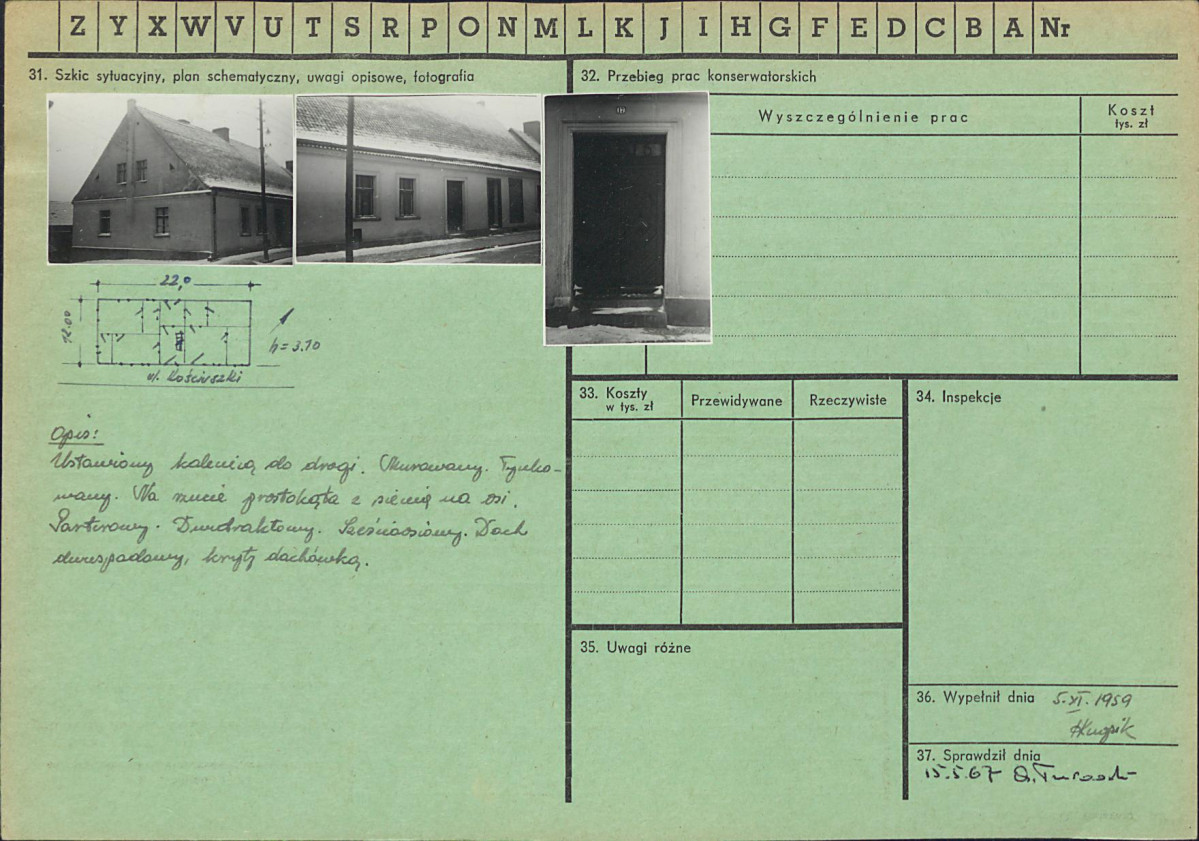 Z Y X W V U T S R P O N M L K J I H G F E D C B A Nr
31. Szkic sytuacyjny, plan schematyczny, uwagi opisowe, fotografia
22,0
12.00
h = 3.70
ul. Kościuszki
Opis:
Ustawiony kalenicą do drogi. Murowany. Tynko-
wany. Na rzucie prostokąta z sienią na osi.
Parterowy. Dwutraktowy. Sześcioosiowy. Dach
dwuspadowy, kryty dachówką.
32. Przebieg prac konserwatorskich
Wyszczególnienie prac
Koszt
tys. zł
12
33. Koszty
w tys. zł
Przewidywane
Rzeczywiste
34. Inspekcje
35. Uwagi różne
36. Wypełnił dnia 5.XI.1959
37. Sprawdził dnia
15.5.67